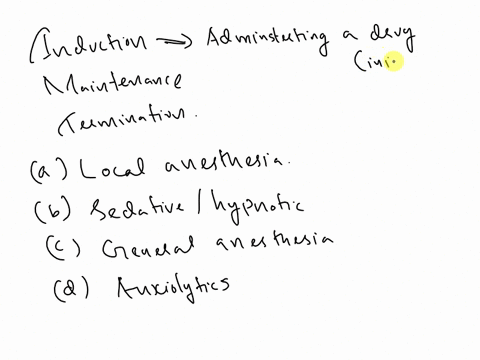 Induction → Adminstecting a drug
(ini
Maintenance
Termination.
(a) Local anesthesia.
(b) Sedative / hypnotic
(c) General anesthesia
(d) Anxiolytics